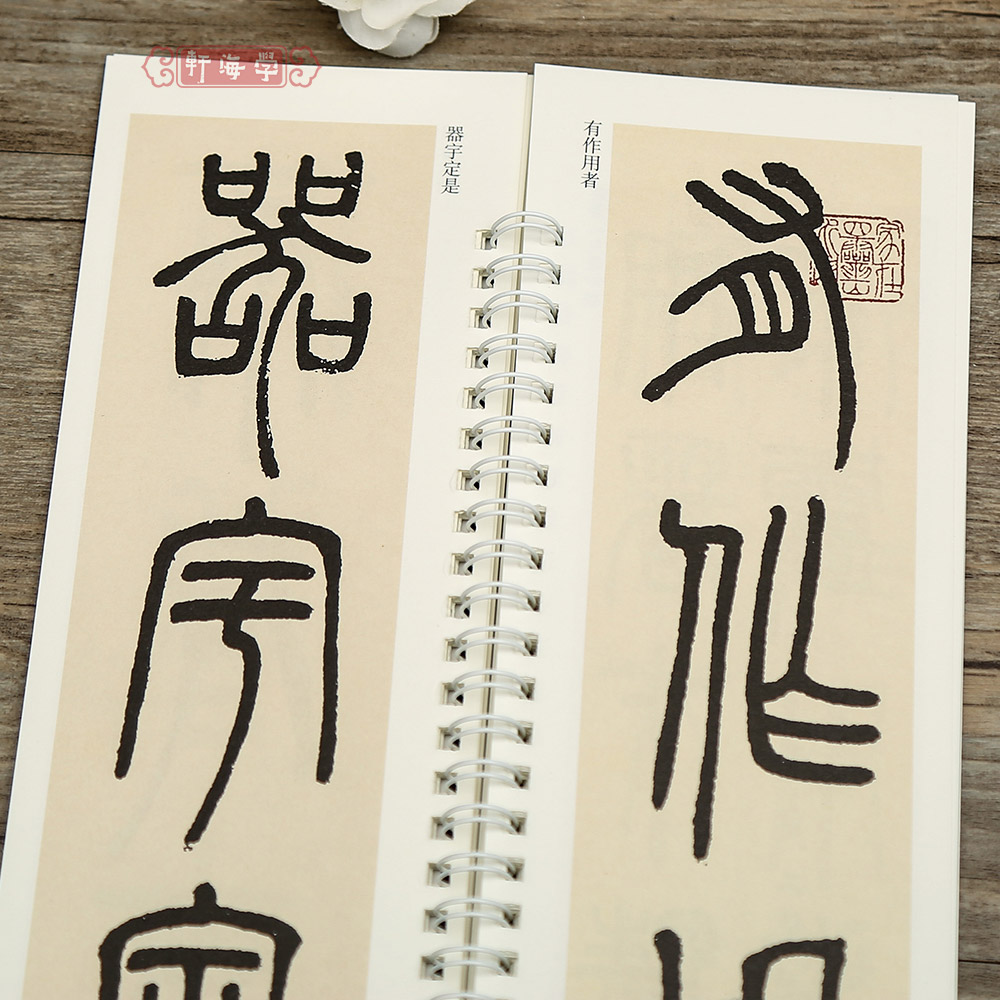 軒海學
有作用者
有作用
器宇定是
器宇定